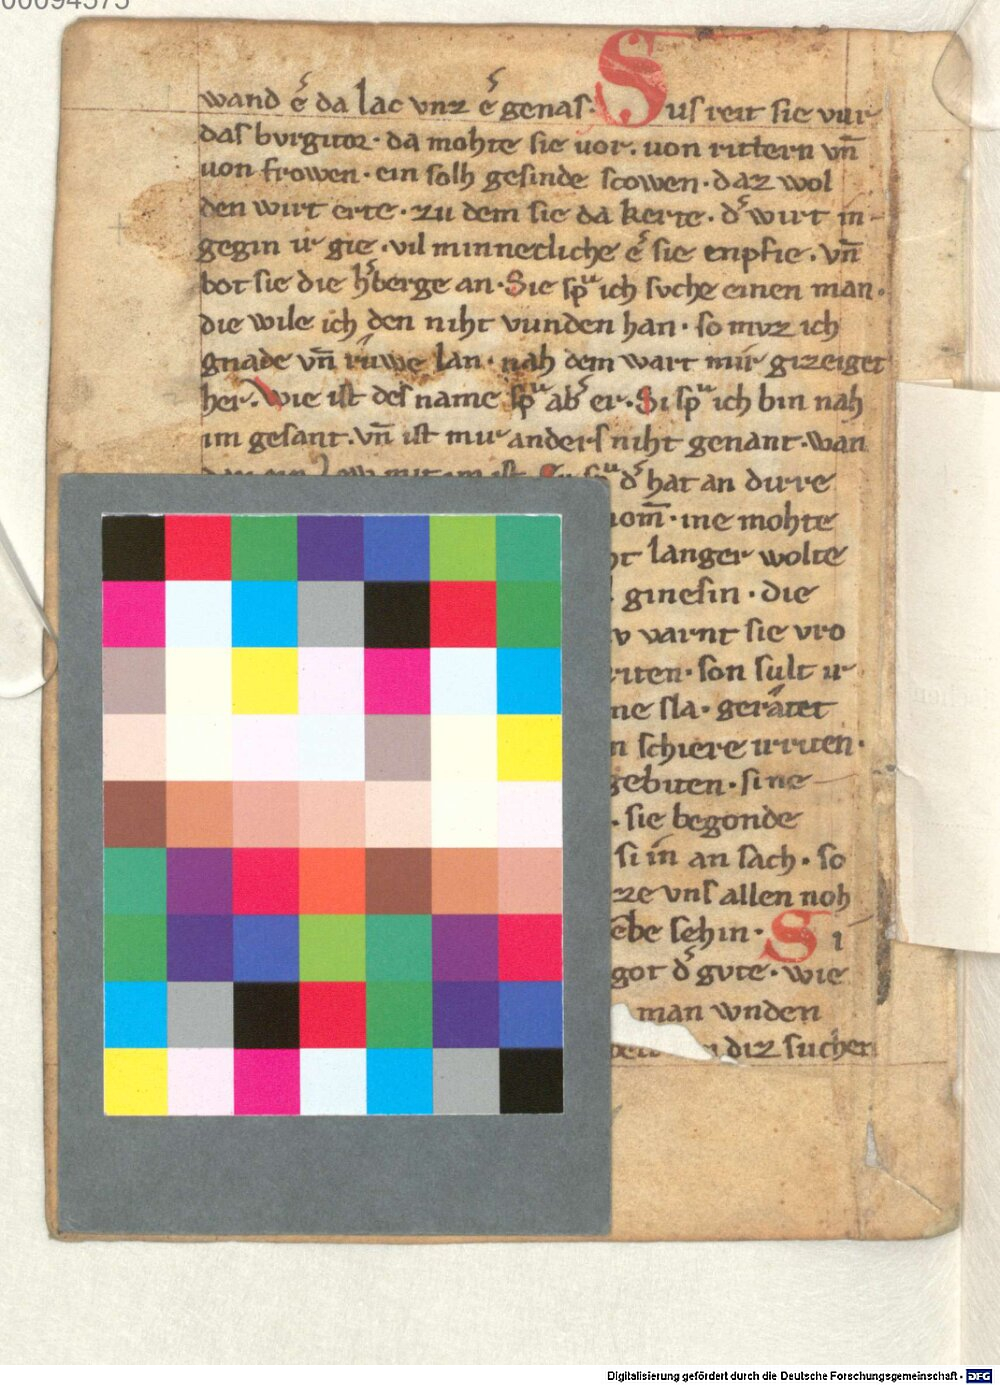 00094373
wand e͛ da lac vnz e͛ genas· Sus reit sie vur
das burgitor· da mohte sie uor. uon rittern vn̄
uon frowen· ein solh gesinde scowen· daz wol
den wirt erte· zu dem sie da kerte· d͛ wirt in-
gegin ir gie· vil minnecliche e͛ sie enpfie. vn̄
bot sie die h͛berge an· Sie spͧ ich svche einen man·
die wile ich den niht vunden han· so mvz ich
gnade vn̄ růwe lan· nah dem wart mir gizeiget
her. Wie ist des name spͧ ab͛ er. Si spͧ ich bin nah
im gesant. vn̄ ist mir anders niht genant· wan
d͛ hat an dirre
nom̄· ine mohte
langer wolte
ginesin· die
warnt sie vro
riten· son sult ir
ne sla· geratet
schiere irriten·
gebiten· sine
· sie begonde
si in an sach· so
ze vns allen noh
ebe sehin· Si
got d͛ gvte· wie
man wnden
diz suchen
Digitalisierung gefördert durch die Deutsche Forschungsgemeinschaft - DFG